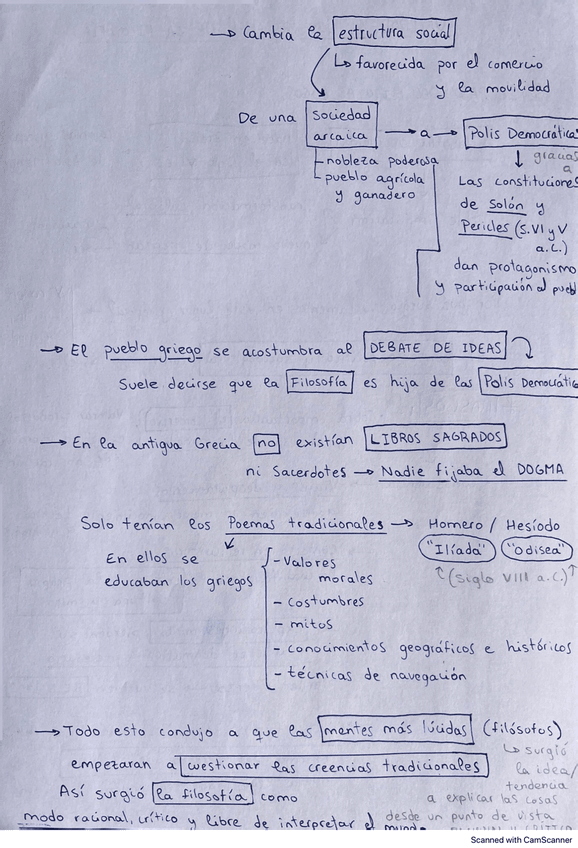 → Cambia la estructura social
↳ favorecida por el comercio
y la movilidad
De una sociedad arcaica → a → Polis Democrática
- nobleza poderosa
- pueblo agrícola
y ganadero
↓ gracias
a
Las constituciones
de Solón y
Pericles (S.VI y V
a.C.)
dan protagonismo
y participación al puebl
→ El pueblo griego se acostumbra al DEBATE DE IDEAS
Suele decirse que la Filosofía es hija de las Polis Democrátic
→ En la antigua Grecia no existían LIBROS SAGRADOS
ni Sacerdotes → Nadie fijaba el DOGMA
Solo tenían los Poemas tradicionales → Homero / Hesíodo
"Ilíada" "Odisea"
↑ (Siglo VIII a.C.) ↑
En ellos se
educaban los griegos
- Valores
morales
- costumbres
- mitos
- conocimientos geográficos e históricos
- técnicas de navegación
→ Todo esto condujo a que las mentes más lúcidas (filósofos)
empezaran a cuestionar las creencias tradicionales
Así surgió la filosofía como
modo racional, crítico y libre de interpretar el mundo
↳ surgió
la idea/
tendencia
a explicar las cosas
desde un punto de vista
Scanned with CamScanner